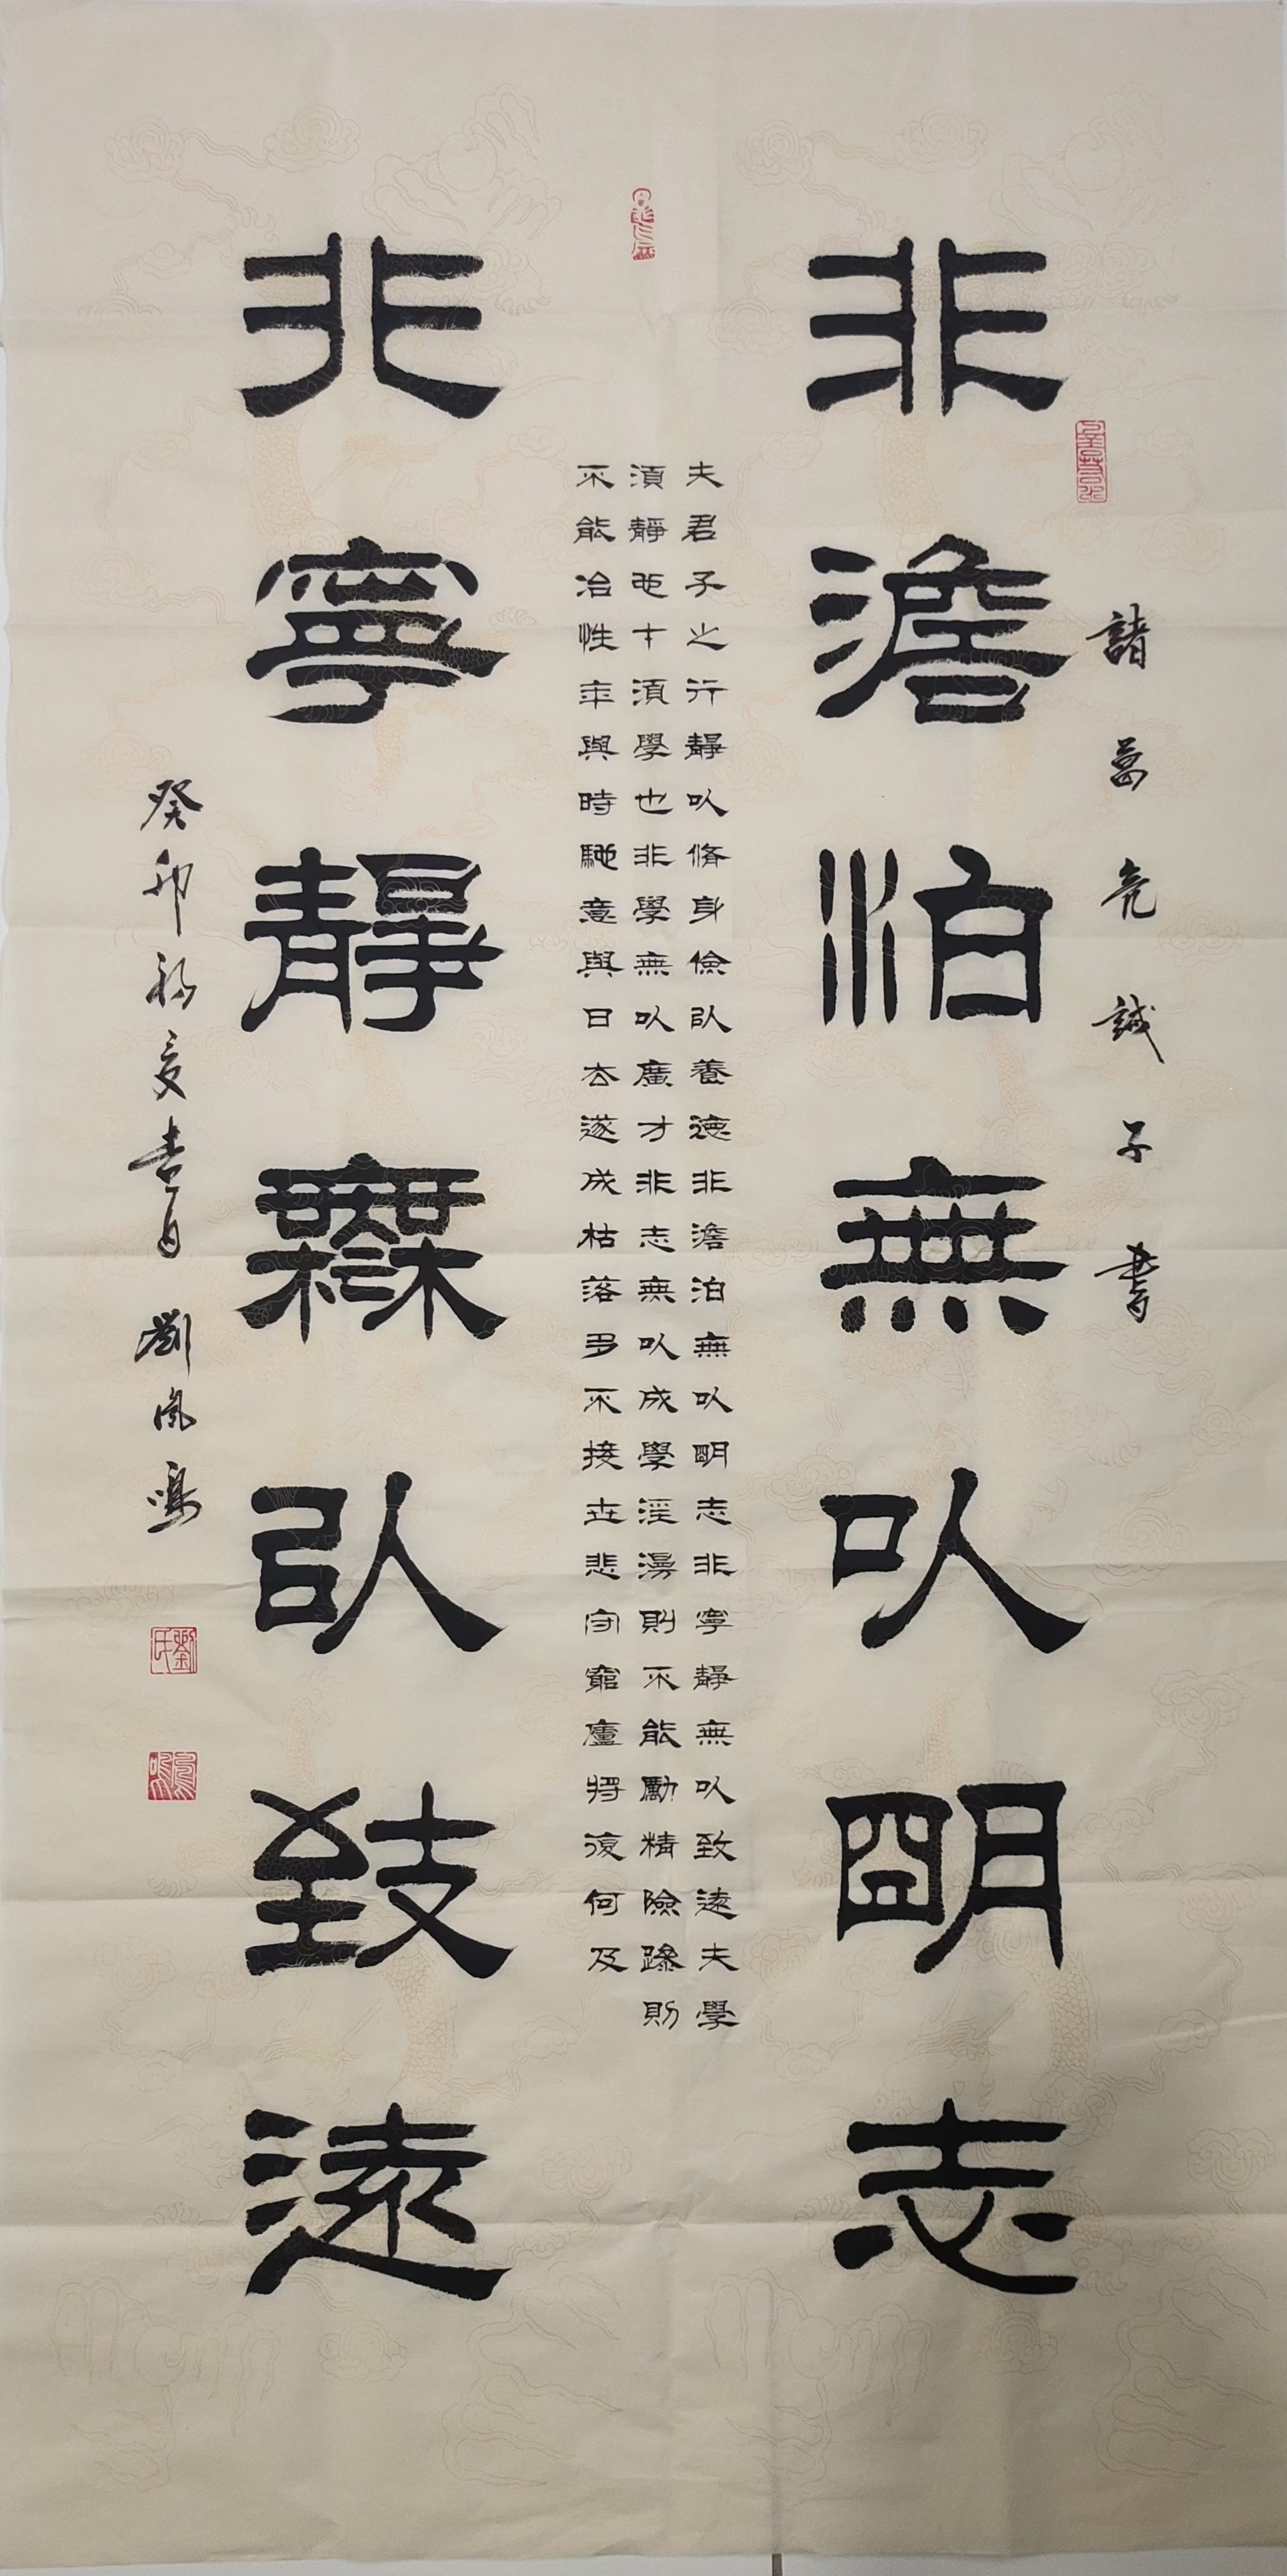 諸葛亮誡子書
非澹泊無以明志
夫君子之行靜以脩身儉以養德非澹泊無以明志非寧靜無以致遠夫學
須靜也才須學也非學無以廣才非志無以成學淫漫則不能勵精險躁則
不能冶性年與時馳意與日去遂成枯落多不接世悲守窮廬將復何及
非寧靜無以致遠
癸卯初夏吉日 劉鳳鳴
劉氏
鳳鳴